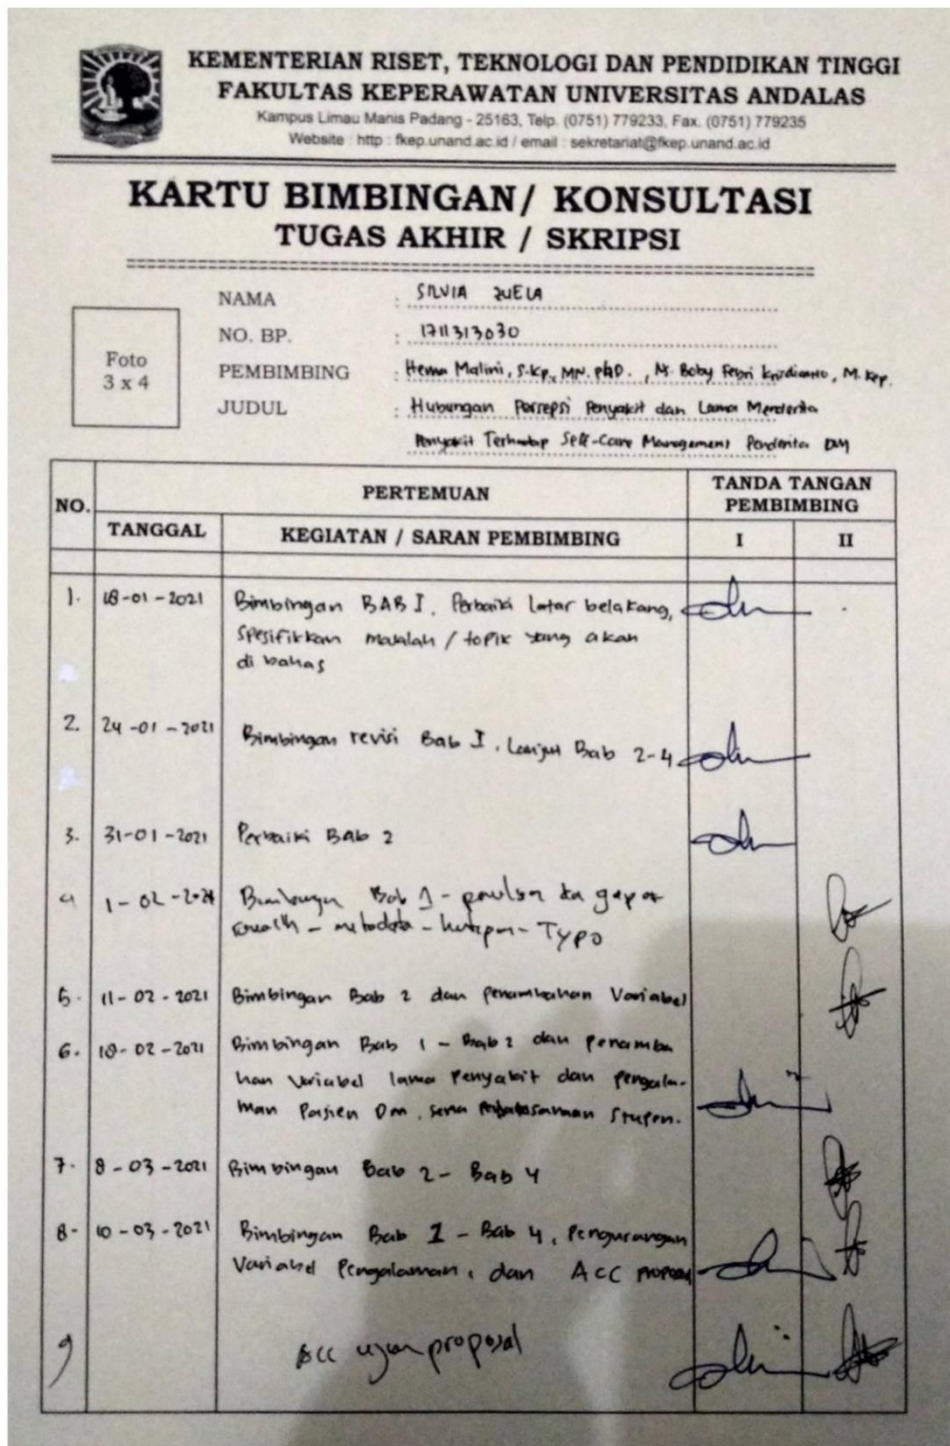 KEMENTERIAN RISET, TEKNOLOGI DAN PENDIDIKAN TINGGI
FAKULTAS KEPERAWATAN UNIVERSITAS ANDALAS
Kampus Limau Manis Padang - 25163, Telp. (0751) 779233, Fax. (0751) 779235
Website : http : fkep.unand.ac.id / email : sekretariat@fkep.unand.ac.id
KARTU BIMBINGAN/ KONSULTASI
TUGAS AKHIR / SKRIPSI
Foto
3 x 4
NAMA : SILVIA ZUELA
NO. BP. : 1711313030
PEMBIMBING : Hema Malini, S.Kp, MN. PhD. , Ns. Boby Febri , M. Kep.
JUDUL : Hubungan Persepsi Penyakit dan Lama Menderita
Penyakit Terhadap Self-Care Management Penderita DM
NO. PERTEMUAN TANDA TANGAN PEMBIMBING
TANGGAL KEGIATAN / SARAN PEMBIMBING I II
1. 18-01-2021 Bimbingan BAB I. Perbaiki latar belakang,
spesifikkan masalah / topik yang akan
di bahas
2. 24-01-2021 Bimbingan revisi Bab I. Lanjut Bab 2-4
3. 31-01-2021 Perbaiki Bab 2
4 1-02-2021 Bab 1 - - Typo
5. 11-02-2021 Bimbingan Bab 2 dan penambahan Variabel
6. 18-02-2021 Bimbingan Bab 1 - Bab 2 dan penamba
han variabel lama penyakit dan pengala-
man Pasien Dm, serta
7. 8-03-2021 Bimbingan Bab 2 - Bab 4
8- 10-03-2021 Bimbingan Bab 1 - Bab 4, Pengurangan
Variabel Pengalaman, dan ACC proposal
9 Acc ujian proposal